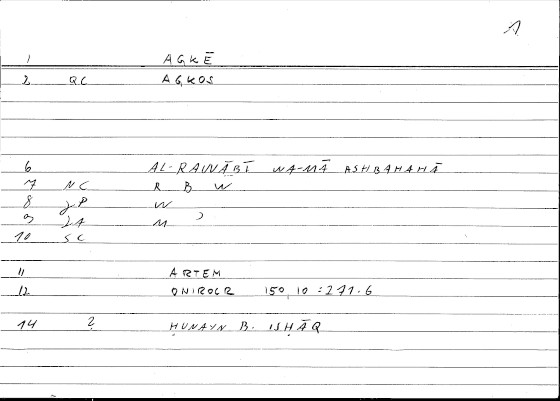 1
1 AGKĒ
2 QC AGKOS
6 AL-RAWĀBĪ WA-MĀ ASHBAHAHĀ
7 NC R B W
8 JP W
9 JA M ʾ
10 SC
11 ARTEM
12 ONIROCR 150, 10 : 271.6
14 ? ḤUNAYN B. ISḤĀQ